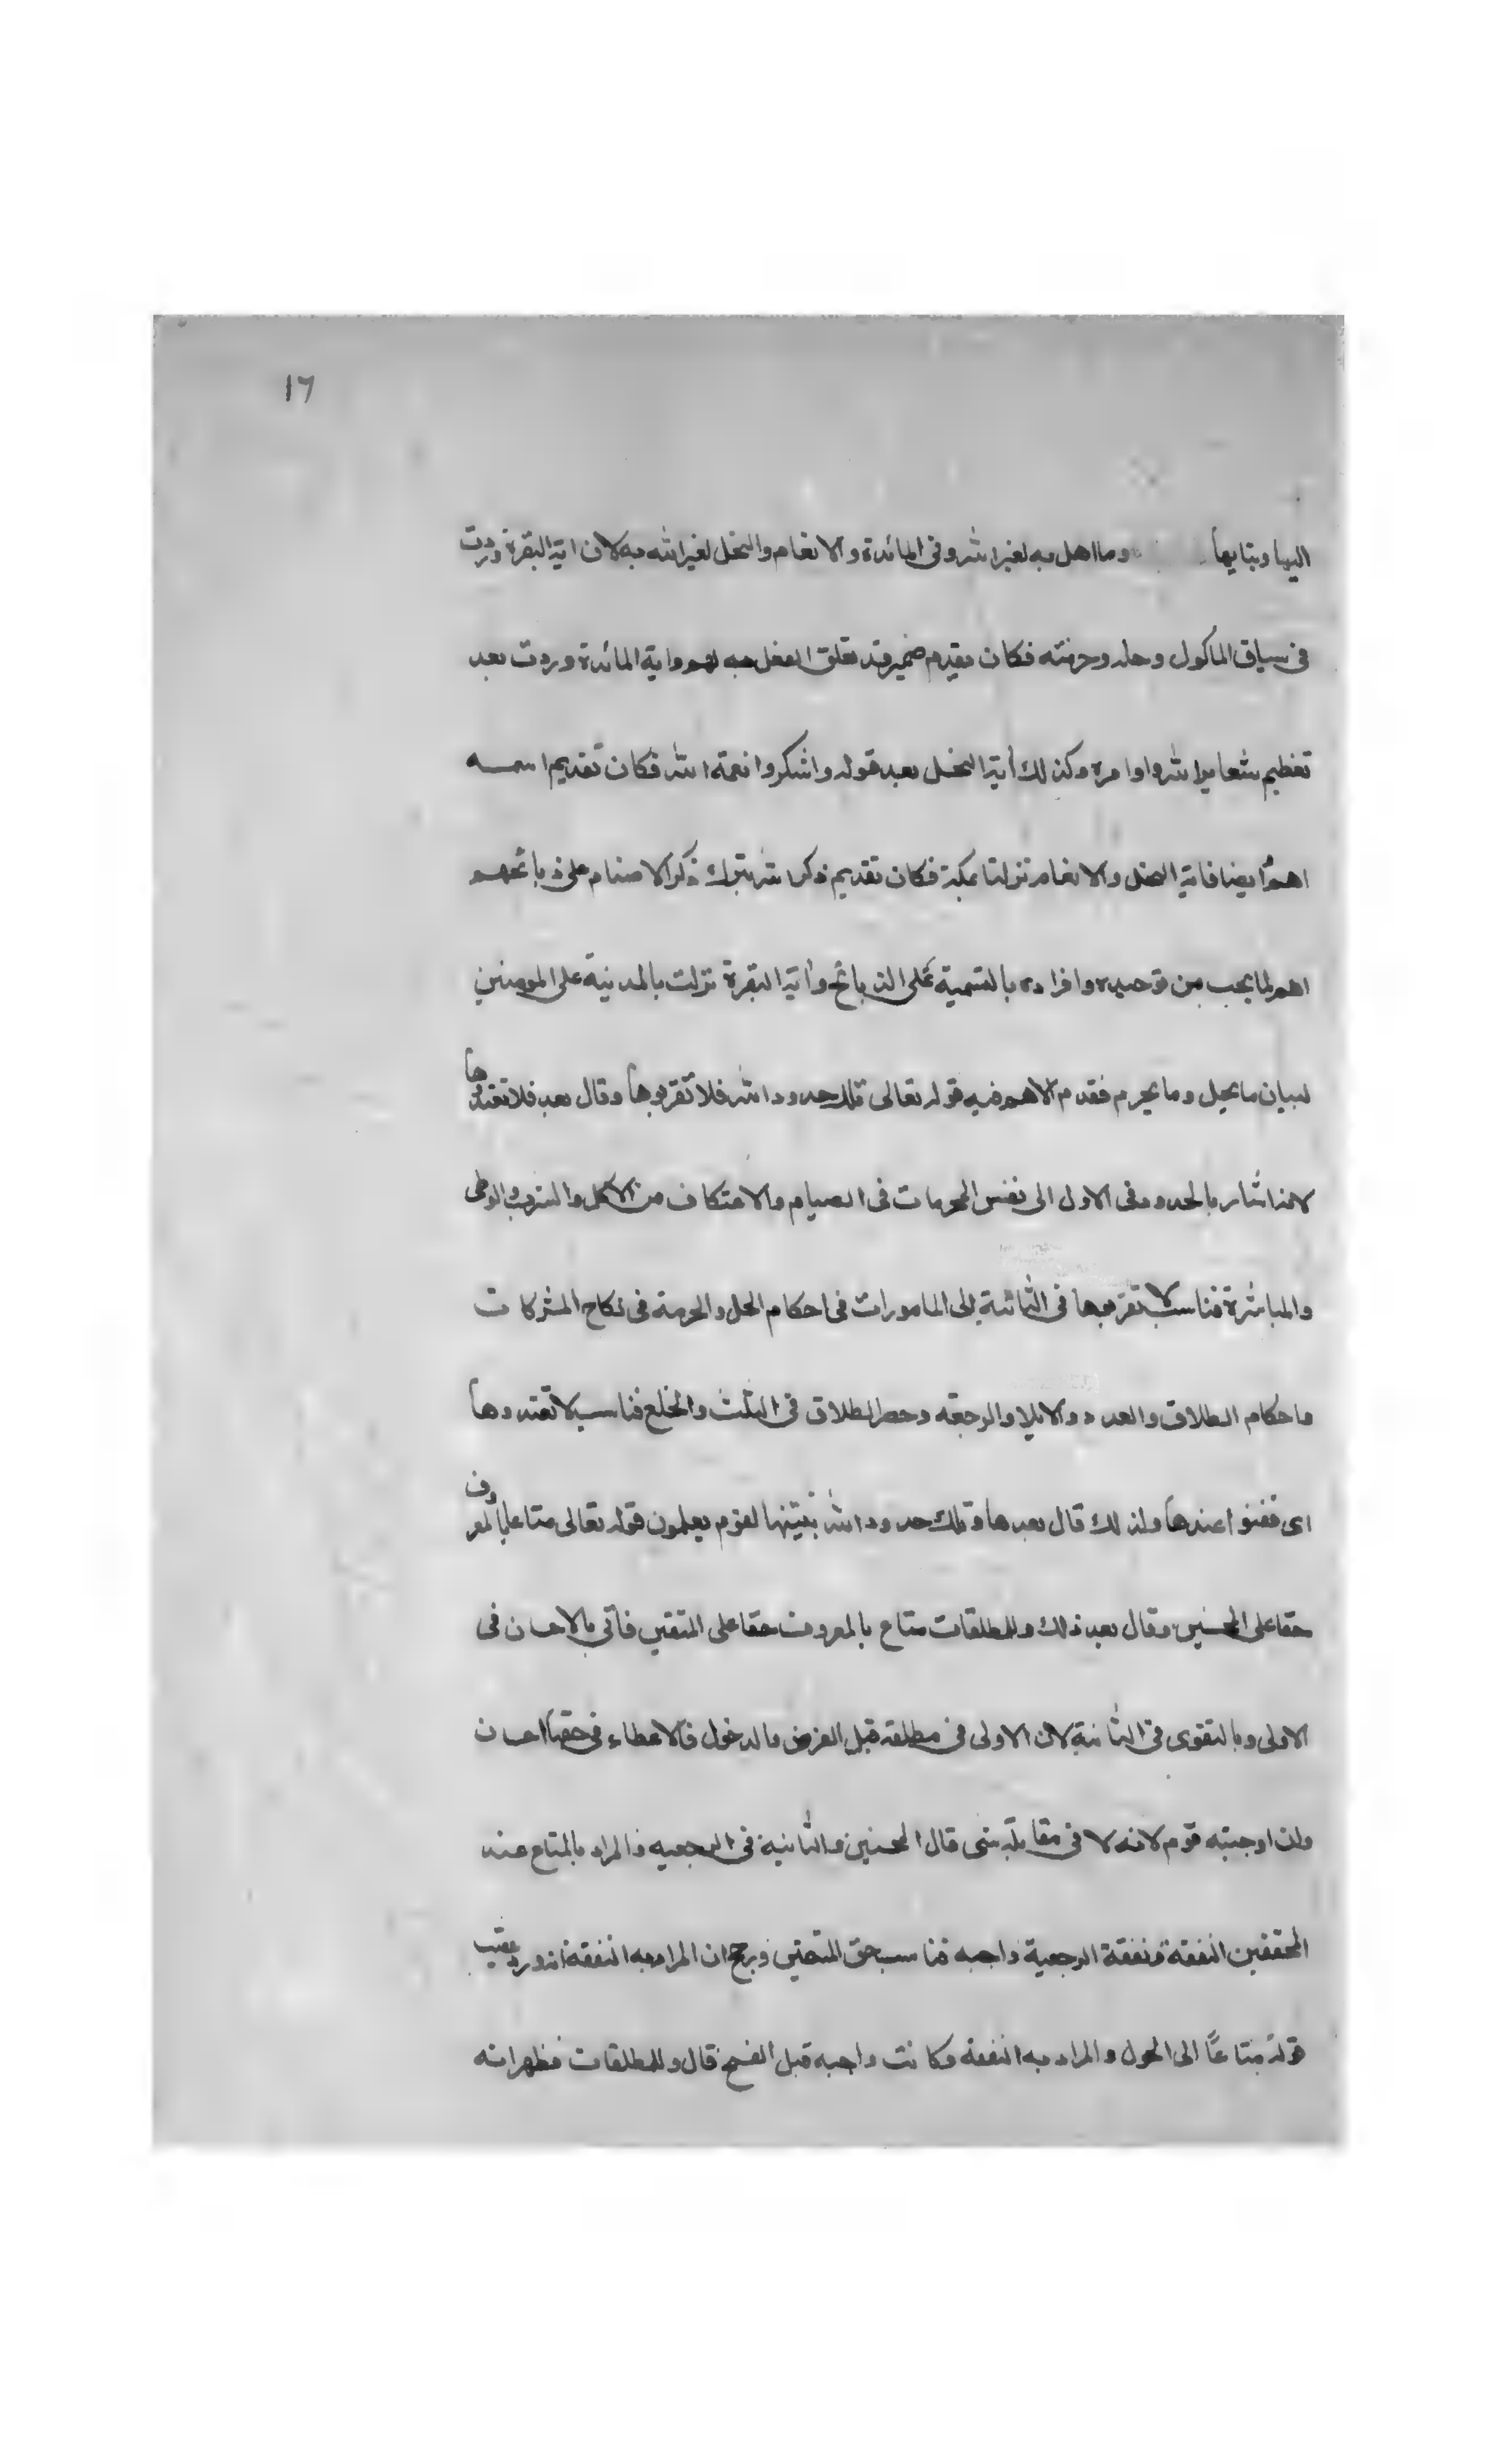 ١٦
اليها وبنايها وما اهل به لغير الله وفى المائدة والانعام والنحل لغير الله به لان اية البقرة وردت
فى سياق الماكول وحله وحرمته فكان تقديم ضمير قد تعلق الفعل به اهم واية المائدة وردت بعد
تعظيم شعاير الله واوامره وكذلك أية النحل بعد قوله واشكروا نعمة الله فكان تقديم اسمه
اهم أيضا فاية النحل والانعام نزلتا بمكة فكان تقديم ذكر الله بترك ذكر الاصنام على ذبائحهم
اهم لما يجب من توحيده وافراده بالتسمية على الذبائح وأية البقرة نزلت بالمدينة على المومنين
لبيان ما يحل وما يحرم فقدم الاهم فيه قوله تعالى تلك حدود الله فلا تقربوها وقال بعد فلا تعتدوها
لانه اشار بالحدود فى الاول الى نفس المحرمات فى الصيام والاعتكاف من الاكل والشرب والوطى
والمباشرة فناسب لا تقربوها فى الثانية الى المامورات فى احكام الحل والحرمة فى نكاح المشركات
واحكام الطلاق والعدد والايلا والرجعة وحصر الطلاق فى الثلث والخلع فناسب لا تعتدوها
اى قفوا عندها ولذلك قال بعدها وتلك حدود الله نبينها لقوم يعلمون قوله تعالى متاعا بالمعروف
حقا على المحسنين وقال بعد ذلك وللمطلقات متاع بالمعروف حقا على المتقين فأتى بالاحسان فى
الاولى وبالتقوى فى الثانية لان الاولى فى مطلقة قبل الفرض والدخول فالاعطاء فى حقها احسان
وان اوجبته قوم لانه لا فى مقابلة شى قال المحسنين والثانية فى الرجعيه والمراد بالمتاع عند
المحققين النفقة ونفقة الرجعية واجبه فناسب حق المتقين ويرجح ان المراد به النفقة انه ورد عقيب
قوله متاعًا الى الحول والمراد به النفقة وكانت واجبه قبل الفسخ قال وللمطلقات فظهر انه